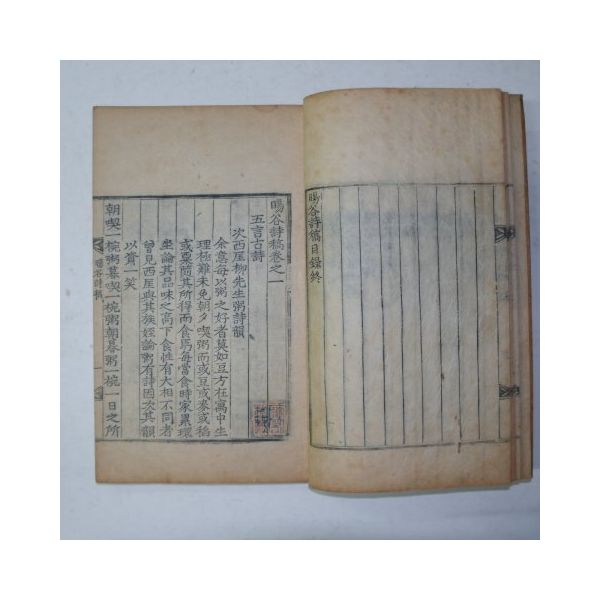 暘谷詩稿目錄終
暘谷詩稿卷之一
五言古詩
次西厓柳先生粥詩韻
余意每以粥之好者莫如豆方在寓中生
理極難未免朝夕喫粥而或豆或麥或稻
或粟隨其所得而食焉每當食時家累環
坐論其品味之高下食性有大相不同者
曾見西厓與其族姪論粥有詩因次其韻
以資一笑
朝喫一椀粥暮喫一椀粥朝暮粥一椀一日之所
暘谷詩稿